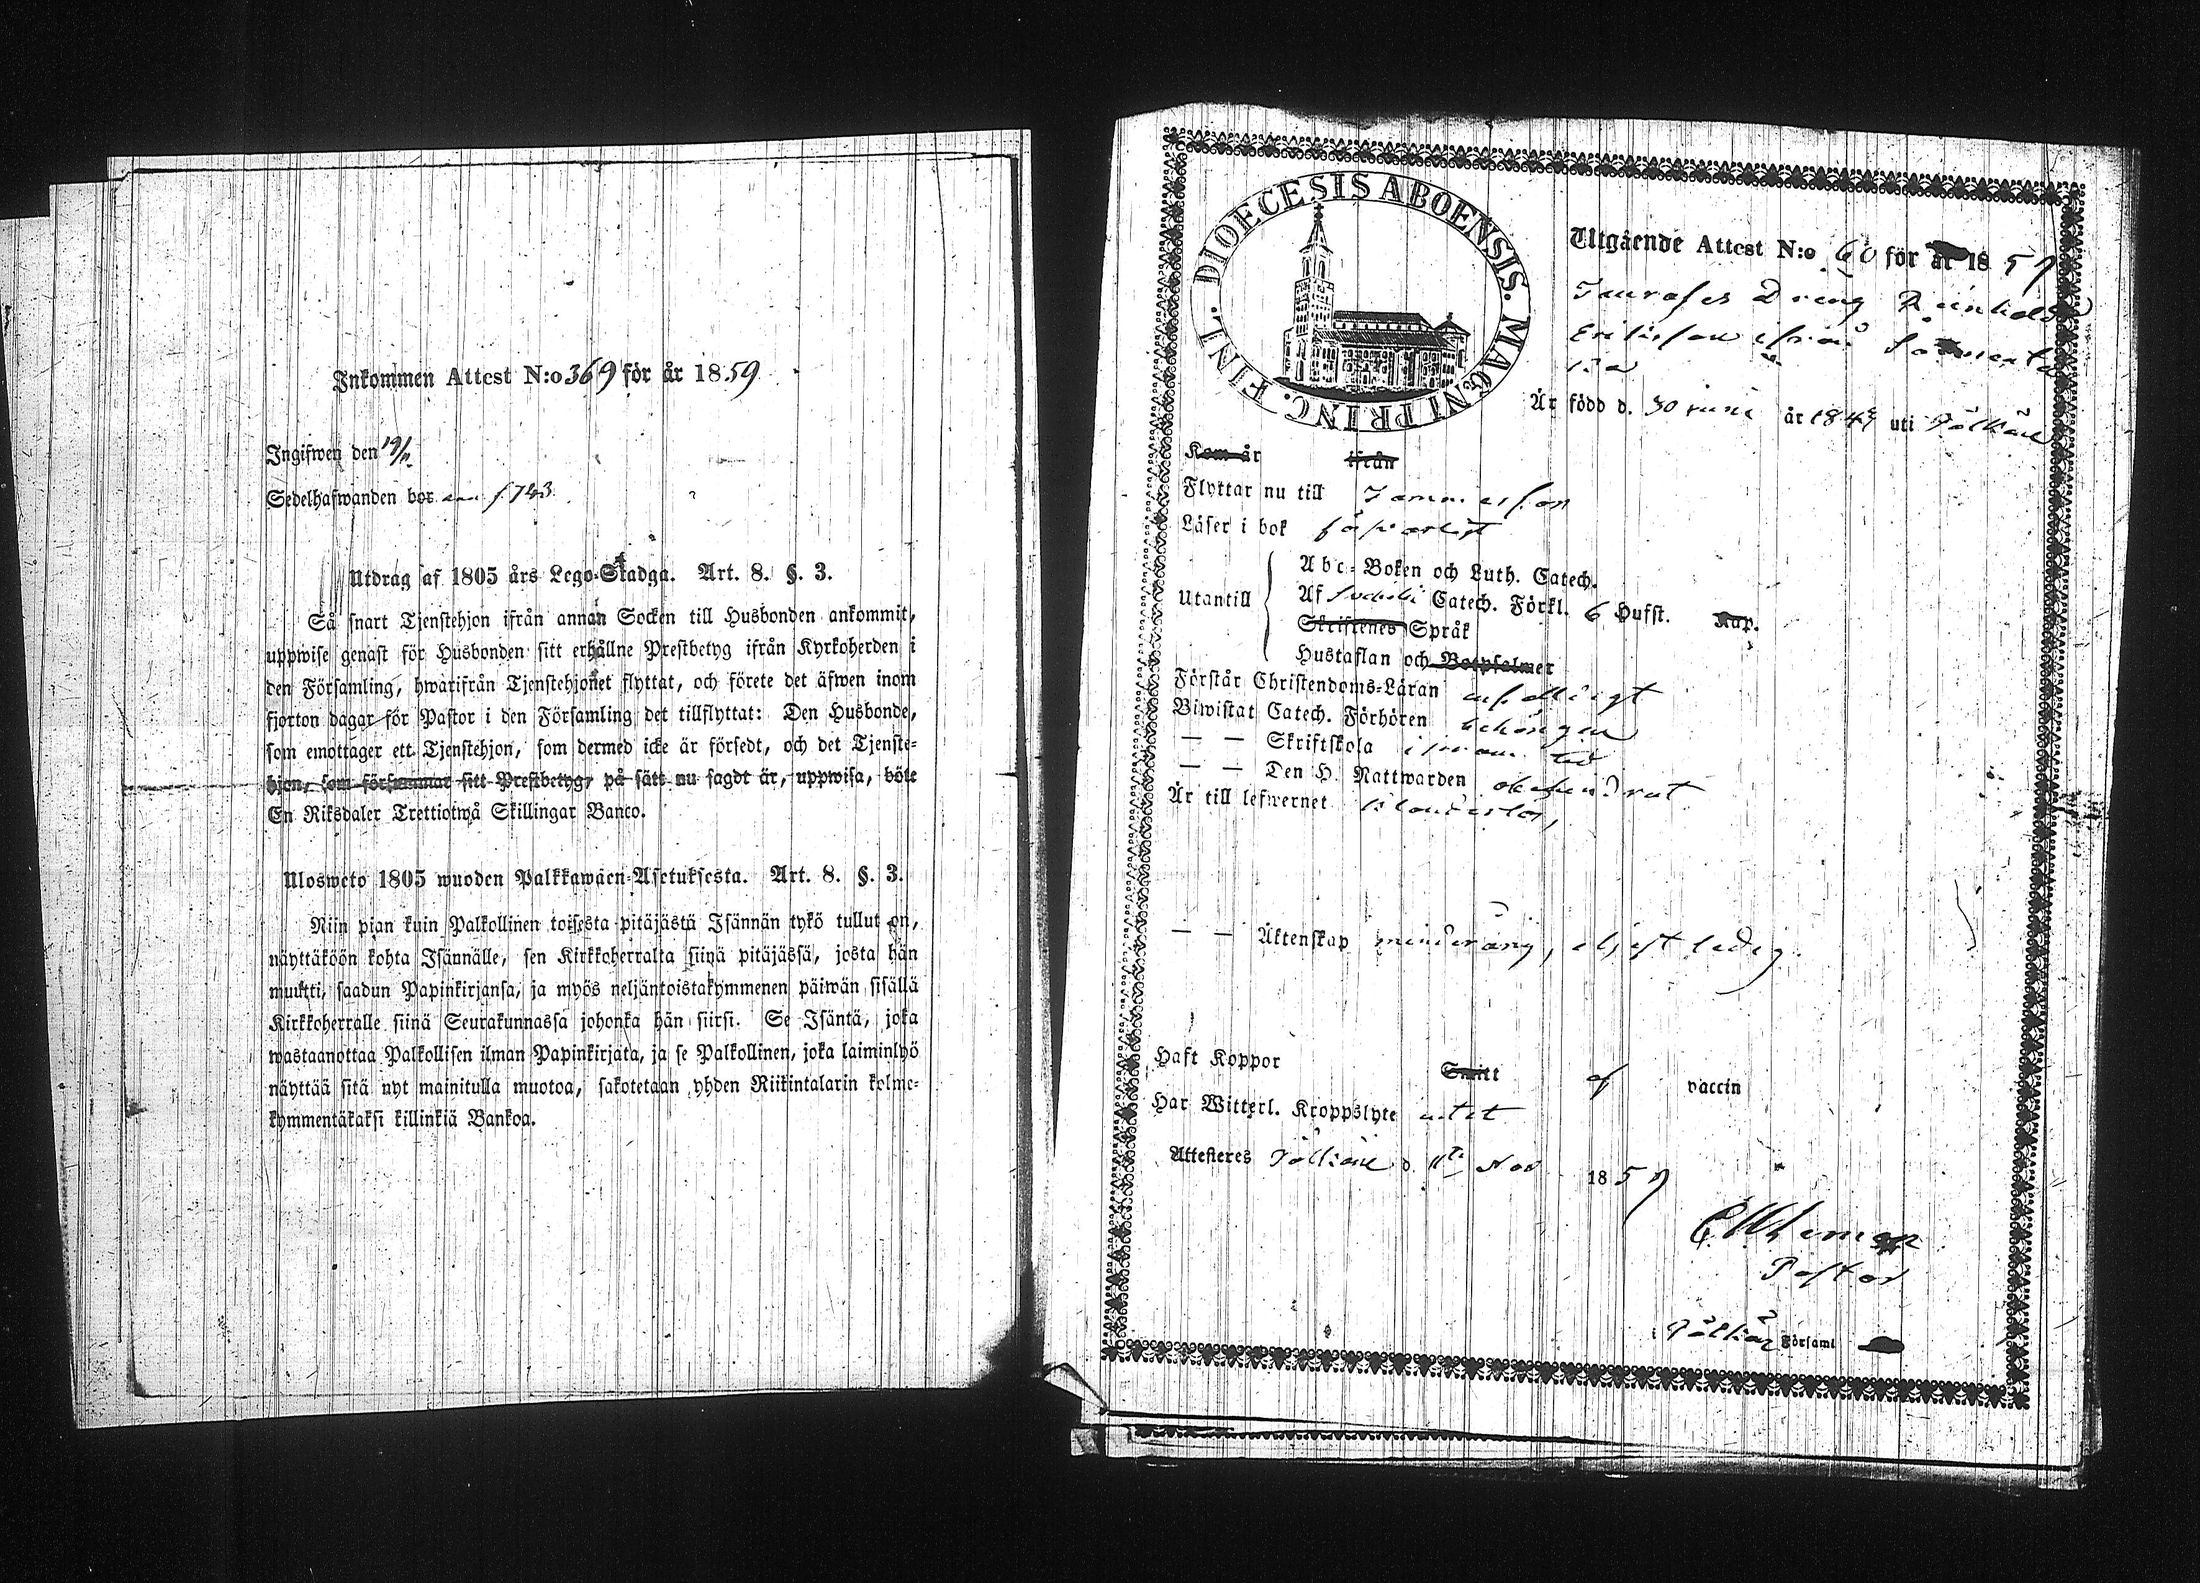 Inkommen Attest N:o 369 för år 1859
Ingifwen den 19/11
Sedelhafwanden bor f 743
Utdrag af 1805 års Lego-Stadga. Art. 8. §. 3.
Så snart Tjenstehjon ifrån annan Socken till Husbonden ankommit,
uppwise genast för Husbonden sitt erhållne Prestbetyg ifrån Kyrkoherden i
den Församling, hwarifrån Tjenstehjonet flyttat, och förete det äfwen inom
fjorton dagar för Pastor i den Församling det tillflyttat: Den Husbonde,
som emottager ett Tjenstehjon, som dermed icke är försedt, och det Tjenste-
hjon, som försummar sitt Prestbetyg, på sätt nu sagdt är, uppwisa, böte
En Riksdaler Trettiotwå Skillingar Banco.
Ulosweto 1805 wuoden Palkkawäen-Asetuksesta. Art. 8. §. 3.
Niin pian kuin Palkollinen toisesta pitäjästä Isännän tykö tullut on,
näyttäköön kohta Isännälle, sen Kirkkoherralta siinä pitäjässä, josta hän
muutti, saadun Papinkirjansa, ja myös neljäntoistakymmenen päiwän sisällä
Kirkkoherralle siinä Seurakunnassa johonka hän siirsi. Se Isäntä, joka
wastaanottaa Palkollisen ilman Papinkirjata, ja se Palkollinen, joka laiminlyö
näyttää sitä nyt mainitulla muotoa, sakotetaan yhden Riikintalarin kolme-
kymmentäkaksi killinkiä Bankoa.
DIOECESIS ABOENSIS. MAGNI PRINC. FINL.
Utgående Attest N:o 60 för år 1859
Dreng Reinhold
Ericsson ifrån
by
Är född d. 30 Juni år 184 uti Pälkäne
Kom år ifrån
Flyttar nu till Tammerfors
Läser i bok försvarligt
Utantill
Abc-Boken och Luth. Catech.
Af Svebelii Catech. Förkl. 6 Hufst. Kap.
Skriftenes Språk
Hustaflan och Botpsalmer
Förstår Christendoms-Läran enfaldigt
Biwistat Catech. Förhören behörigen
— — Skriftskola
— — Den H. Nattwarden obehindrat
Är till lefwernet klanderlös,
— — Äktenskap minderårig, eljest ledig.
Haft Koppor Smitt af vaccin
Har Witterl. Kroppslyte intet
Attesteres Pälkäne d. 11te Nov 1859
Pastor
i Pälkäne Församl